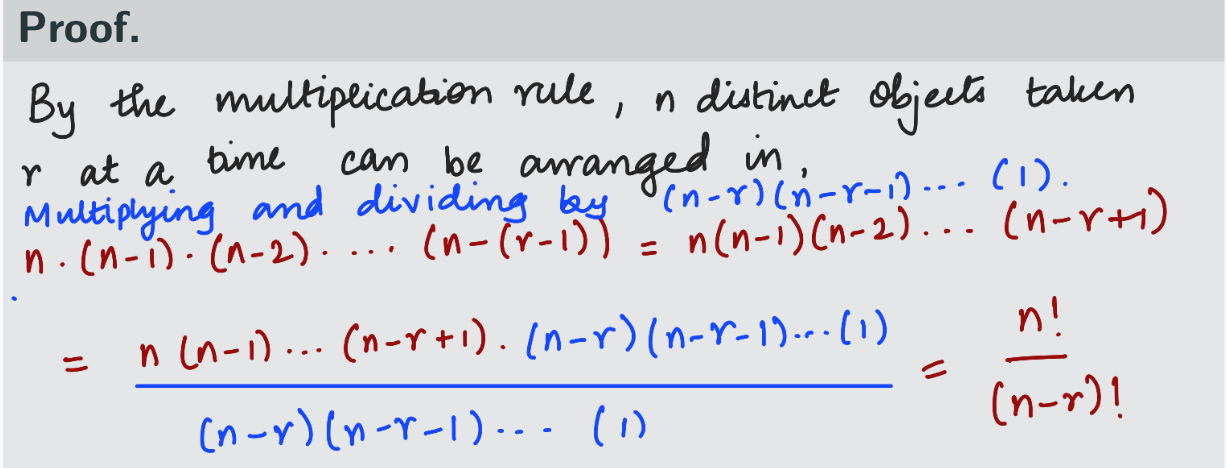 Proof.
By the multiplication rule, n distinct objects taken
r at a time can be arranged in,
Multiplying and dividing by (n-r)(n-r-1)... (1).
n.(n-1).(n-2)..... (n-(r-1)) = n(n-1)(n-2).... (n-r+1)
= n(n-1)... (n-r+1).(n-r)(n-r-1)...(1) / (n-r)(n-r-1)... (1) = n! / (n-r)!